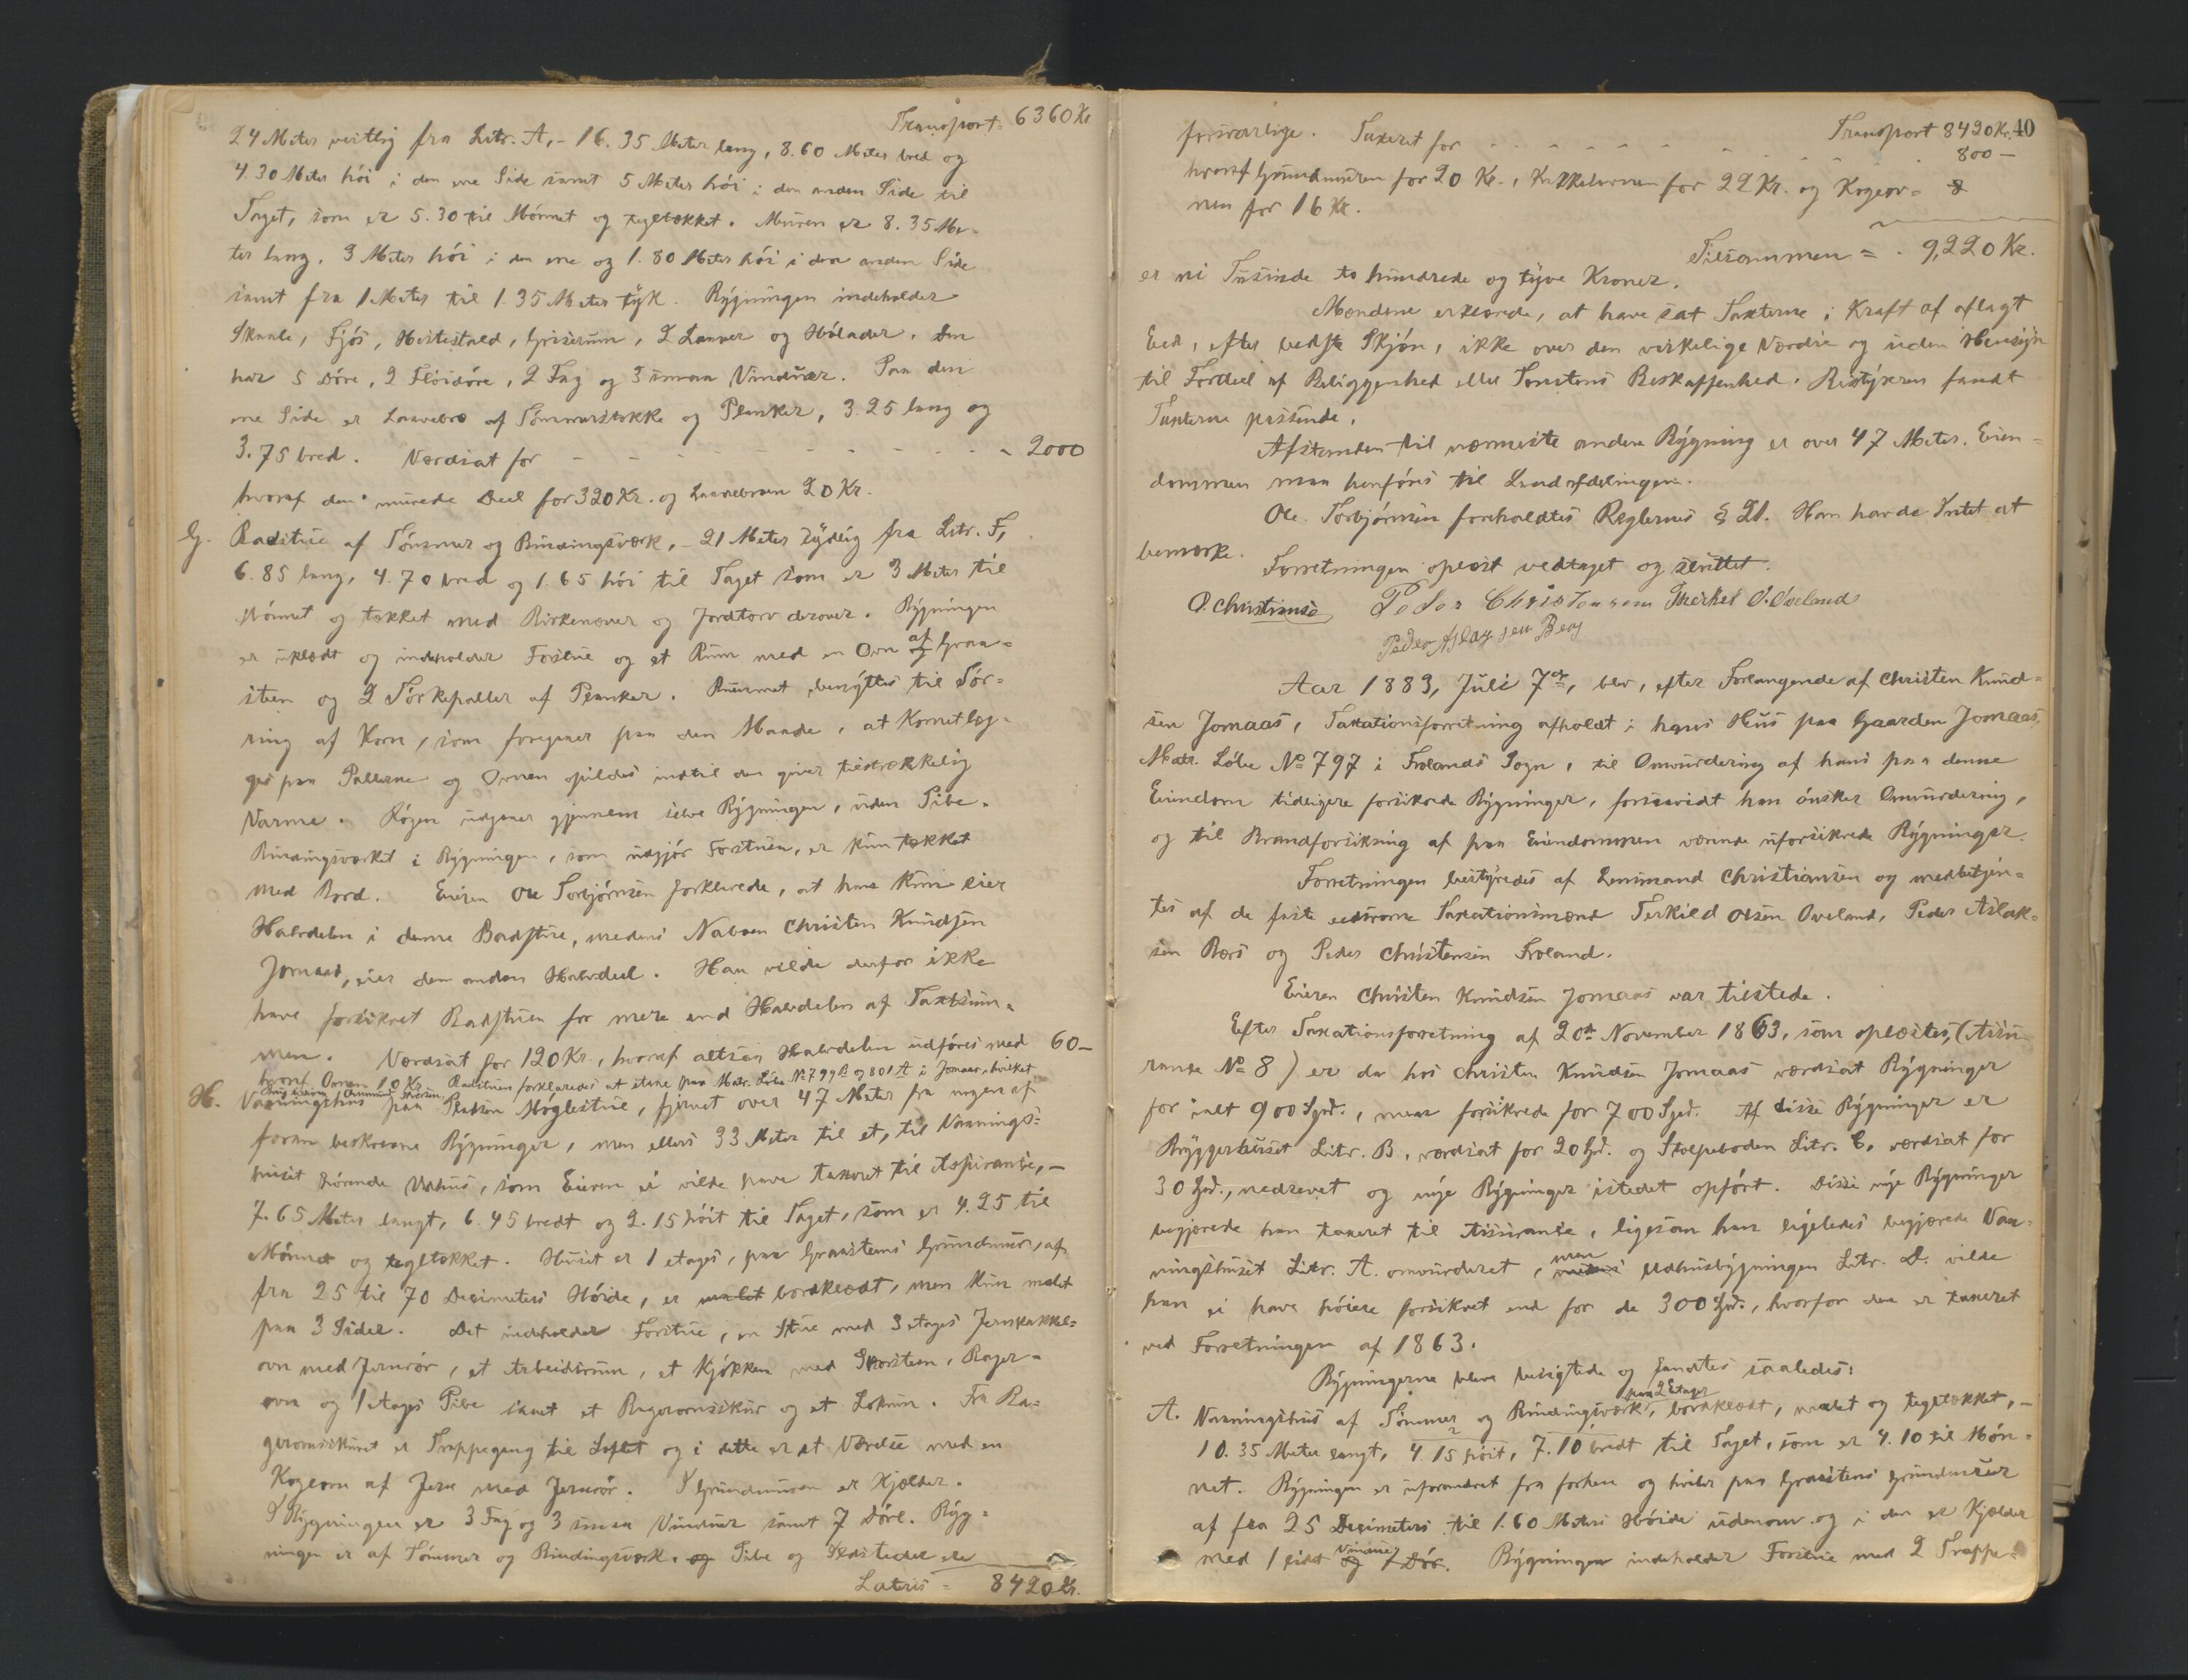 Transport = 6360 Kr
24 Meter vestlig fra Litr. A, - 16.35 Meter lang, 8.60 Meter bred og
4.30 Meter höi i den ene Side samt 5 Meter höi i den anden Side til
Taget, som er 5.30 til Mönnet og tegltækket. Muren er 8.35 Me-
ter lang, 3 Meter höi i den ene og 1.80 Meter höi i den anden Side
samt fra 1 Meter til 1.35 Meter tyk. Bygningen indeholder
Skaale, Fjös, Hestestald, Griserum, 2 Laaver og Hölader. Den
har 5 Döre, 2 Flöidöre, 2 Fag og 3 smaa Vinduer. Paa den
ene Side er Laavebro af Tömmerstokke og Planker, 3.25 lang og
3.75 bred. Værdsat for - - - - - - - - - - 2000
hvoraf den murede Deel for 320 Kr. og Laavebroen 20 Kr.
G. Badstue af Tömmer og Bindingsværk, - 21 Meter sydlig fra Litr. F,
6.85 lang, 4.70 bred og 1.65 höi til Taget som er 3 Meter til
Mönnet og tækket med Birkenæver og Jordtorv derover. Bygningen
er uklædt og indeholder Forstue og et Rum med en Ovn af Graa-
steen og 2 Törkepaller af Planker. Rummet benyttes til Tör-
ring af Korn, som foregaaer paa den Maade, at Kornet læg-
ges paa Pallerne og Ovnen opildes indtil den giver tilstrækkelig
Varme. Rögen udgaaer gjennem selve Bygningen, uden Pibe.
Bindingsværket i Bygningen, som udgjör Forstuen, er kun tækket
med Bord. Eieren Ole Torbjörnsen forklarede, at han kun eier
Halvdelen i denne Badstue, medens Naboen Christen Knudsen
Jomaas, eier den anden Halvdeel. Han vilde derfor ikke
have forsikret Badstuen for mere end Halvdelen af Taxtsum-
men. Værdsat for 120 Kr., hvoraf altsaa Halvdelen udföres med 60 -
hvoraf Ovnen 10 Kr. Badstuen forklaredes at staae paa Matr. Löbe No 799 b og 801 a i Jomaas, hvilket
H. Vaaningshus paa Pladsen Möglestue, fjernet over 47 Meter fra nogen af
foran beskrevne Bygninger, men ellers 33 Meter til et, til Vaanings-
huset hörende Udhus, som Eieren ei vilde have taxeret til Assurance, -
7.65 Meter langt, 6.45 bredt og 2.15 höit til Taget, som er 4.25 til
Mönnet og tegltækket. Huset er 1 etages, paa Graasteens Grundmur, af
fra 25 til 70 Decimeters Höide, er malet bordklædt, men kun malet
paa 3 Sider. Det indeholder Forstue, en Stue med 3 etages Jernkakkel-
ovn med Jernrör, et Arbeidsrum, et Kjökken med Skorsteen, Bager-
ovn og 1 etages Pibe samt et Bagerovnsskur og et Lokrum. Fra Ba-
gerovnsskuret er Trappegang til Loftet og i dette er et Værelse med en
Kogeovn af Jern med Jernrör. I Grundmuren er Kjælder.
I Bygningen er 3 Fag og 3 smaa Vinduer samt 7 Döre. Byg-
ningen er af Tömmer og Bindingsværk. og Pibe og Ildsteder ere
Lateris = 8420 Kr.
40
Transport 8420 Kr.
forsvarlige. Taxeret for - - - - - - - - 800 -
hvoraf Grundmuren for 20 Kr., Kakkelovnen for 22 Kr. og Kogeov-
nen for 16 Kr.
Tilsammen = 9,220 Kr.
er ni Tusinde to hundrede og tyve Kroner.
Mændene erklærede, at have sat Taxterne i Kraft af aflagt
Eed, efter bedste Skjön, ikke over den virkelige Værdie og uden Hensyn
til Fordeel af Beliggenhed eller Tomtens Beskaffenhed. Bestyreren fandt
Taxterne passende.
Afstanden til nærmeste andre Bygning er over 47 Meter. Eien-
dommen maa henföres til Landafdelingen.
Ole Torbjörnsen foreholdtes Reglernes § 21. Han havde Intet at
bemærke.
Forretningen oplæst vedtaget og sluttet.
O. Christiansen Peder Christensen Therkel O. Oveland
Peder Aslaksen Berg
Aar 1883, Juli 7de, blev, efter Forlangende af Christen Knud-
sen Jomaas, Taxationsforretning afholdt i hans Hus paa Gaarden Jomaas,
Matr. Löbe No 797 i Frolands Sogn, til Omvurdering af hans paa denne
Eiendom tidligere forsikrede Bygninger, forsaavidt han önsker Omvurdering,
og til Brandforsikring af paa Eiendommen værende uforsikrede Bygninger.
Forretningen bestyredes af Lensmand Christiansen og medbetjen-
tes af de faste edsvorne Taxationsmænd Terkild Olsen Oveland, Peder Aslak-
sen Bers og Peder Christensen Froland.
Eieren Christen Knudsen Jomaas var tilstede.
Efter Taxationsforretning af 20de November 1863, som oplæstes, (Assu-
rance No 8) er der hos Christen Knudsen Jomaas værdsat Bygninger
for ialt 900 Spd., men forsikrede for 700 Spd. Af disse Bygninger er
Bryggerhuset Litr. B, værdsat for 20 Spd. og Stolpeboden Litr. C, værdsat for
30 Spd., nedrevet og nye Bygninger istedet opfört. Disse nye Bygninger
begjærede han taxeret til Assurance, ligesom han ligeledes begjærede Vaa-
ningshuset Litr. A. omvurderet, men Udhusbygningen Litr. D. vilde
han ei have höiere forsikret end for de 300 Spd., hvorfor den er taxeret
ved Forretningen af 1863.
Bygningerne bleve besigtede og fandtes saaledes:
paa 2 Etager
A. Vaaningshus af Tömmer og Bindingsværk, bordklædt, malet og tegltækket, -
10.35 Meter langt, 4.15 höit, 7.10 bredt til Taget, som er 4.10 til Mön-
net. Bygningen er uforandret fra forhen og hviler paa Graasteens Grundmur
af fra 25 Decimeters til 1.60 Meters Höide udenom og i den er Kjælder
med 1 lidet Vindue og 1 Dör. Bygningen indeholder Forstue med 2 Trappe-